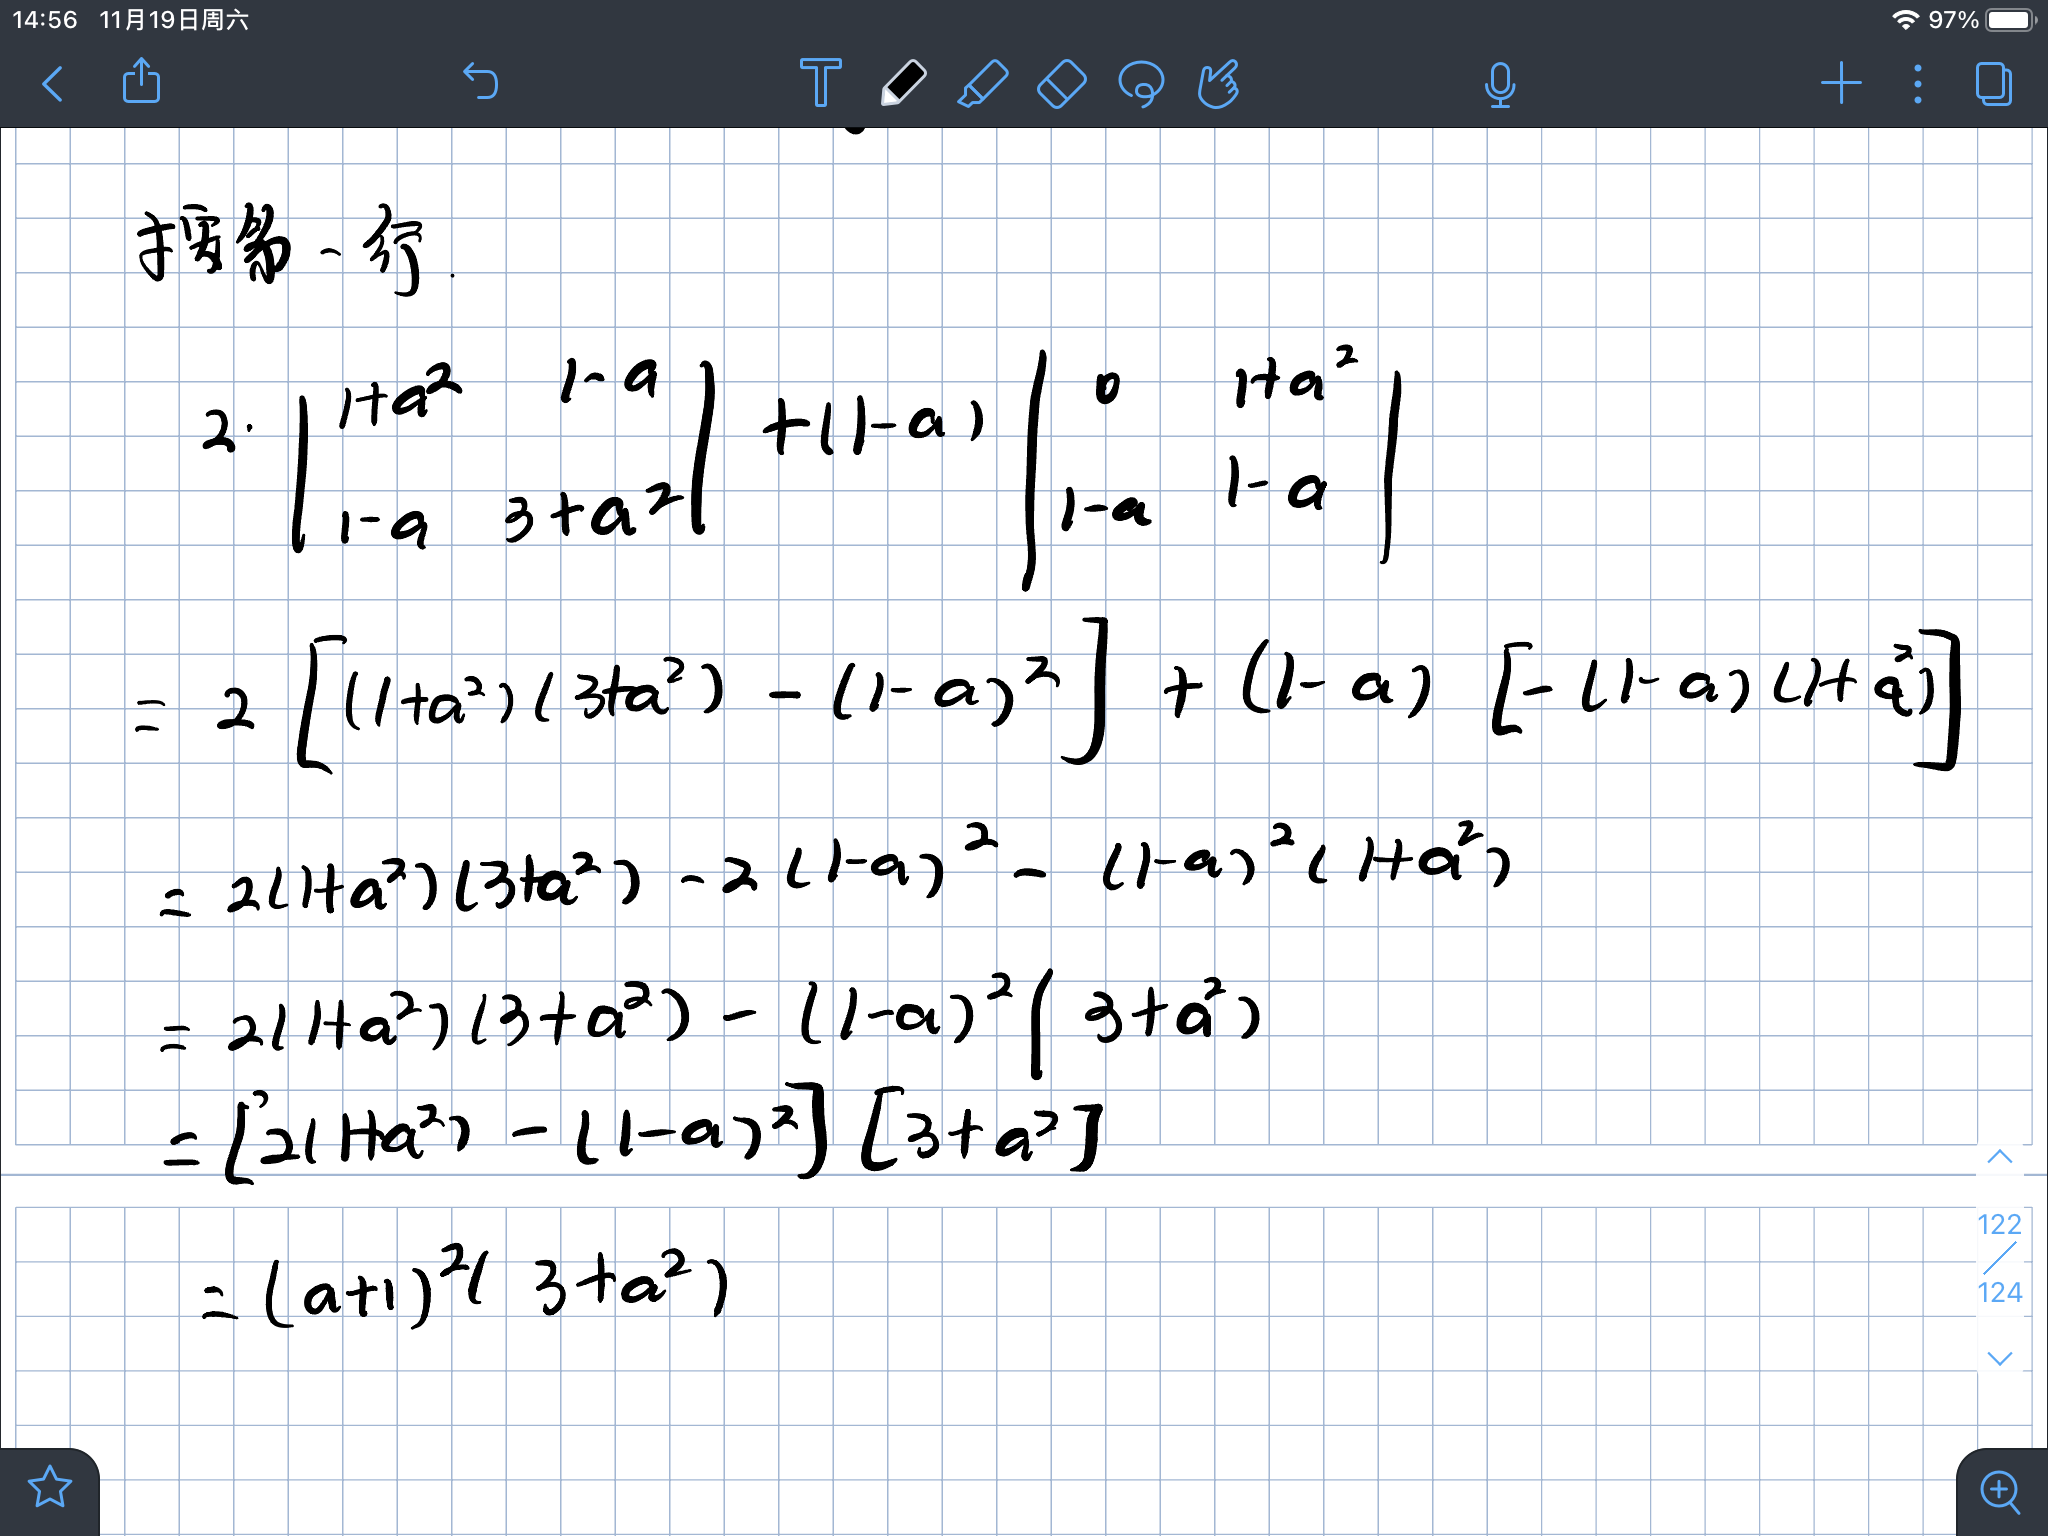 14:56 11月19日周六 97%
按第一行.
2· | 1+a² 1-a | +(1-a) | 0 1+a² |
| 1-a 3+a² | | 1-a 1-a |
= 2 [(1+a²)(3+a²) - (1-a)²] + (1-a) [-(1-a)(1+a²)]
= 2(1+a²)(3+a²) - 2(1-a)² - (1-a)²(1+a²)
= 2(1+a²)(3+a²) - (1-a)²(3+a²)
= [2(1+a²) - (1-a)²] [3+a²]
= (a+1)²(3+a²)
122
/
124